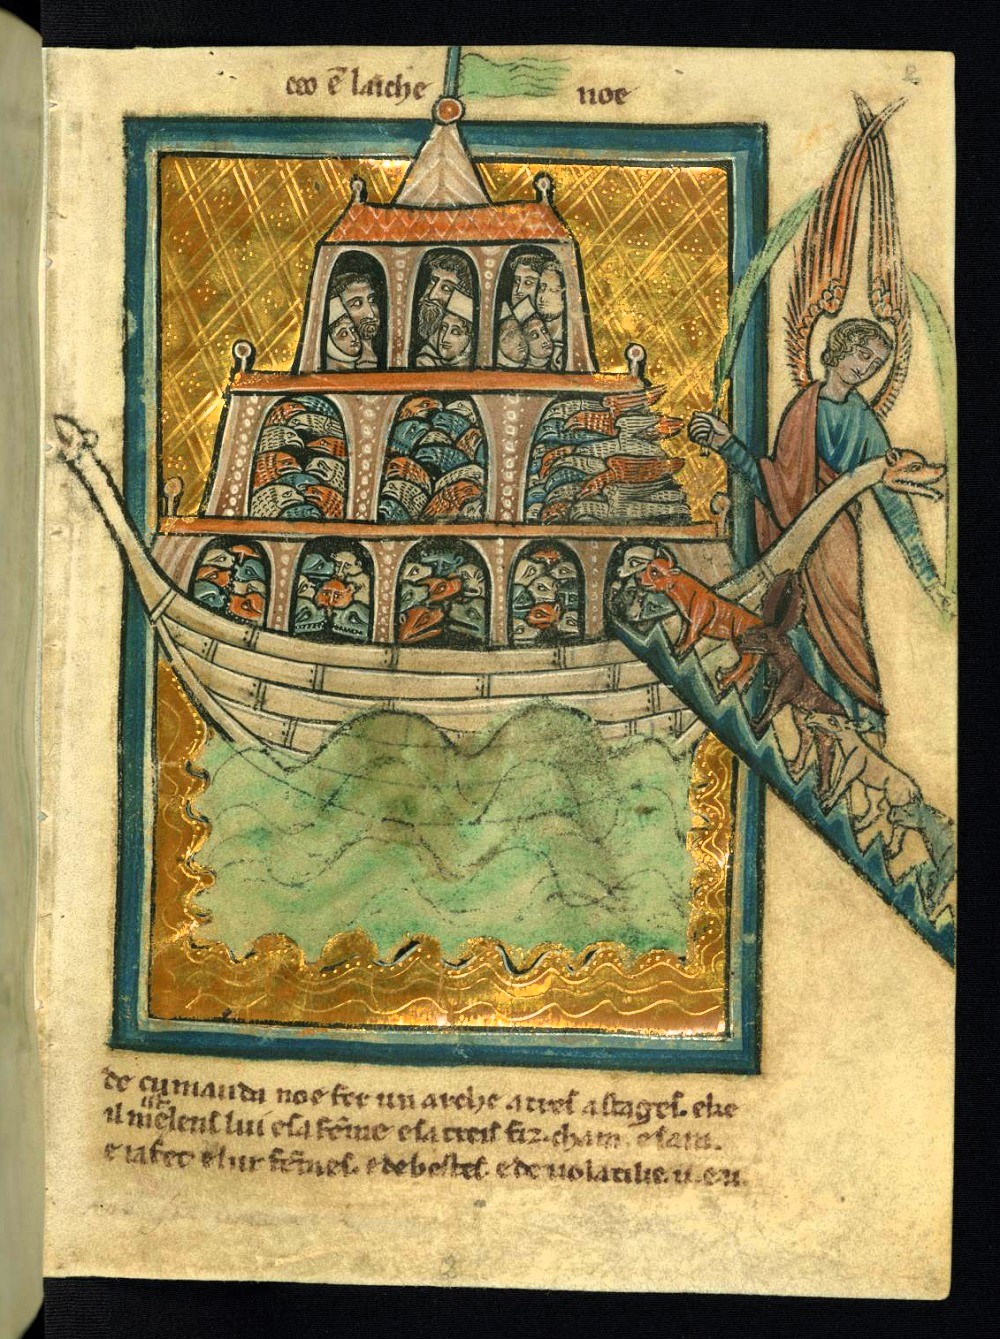 ceo ē larche noe
de cumandu noe fer un arche a treſ aſtageſ. eke
il meiſt enſ lui eſa fēme eſa treiſ fiz. cham. e ſam.
e iafet e lur fēmeſ. e de beſteſ. e de uolatilie. u. e u.